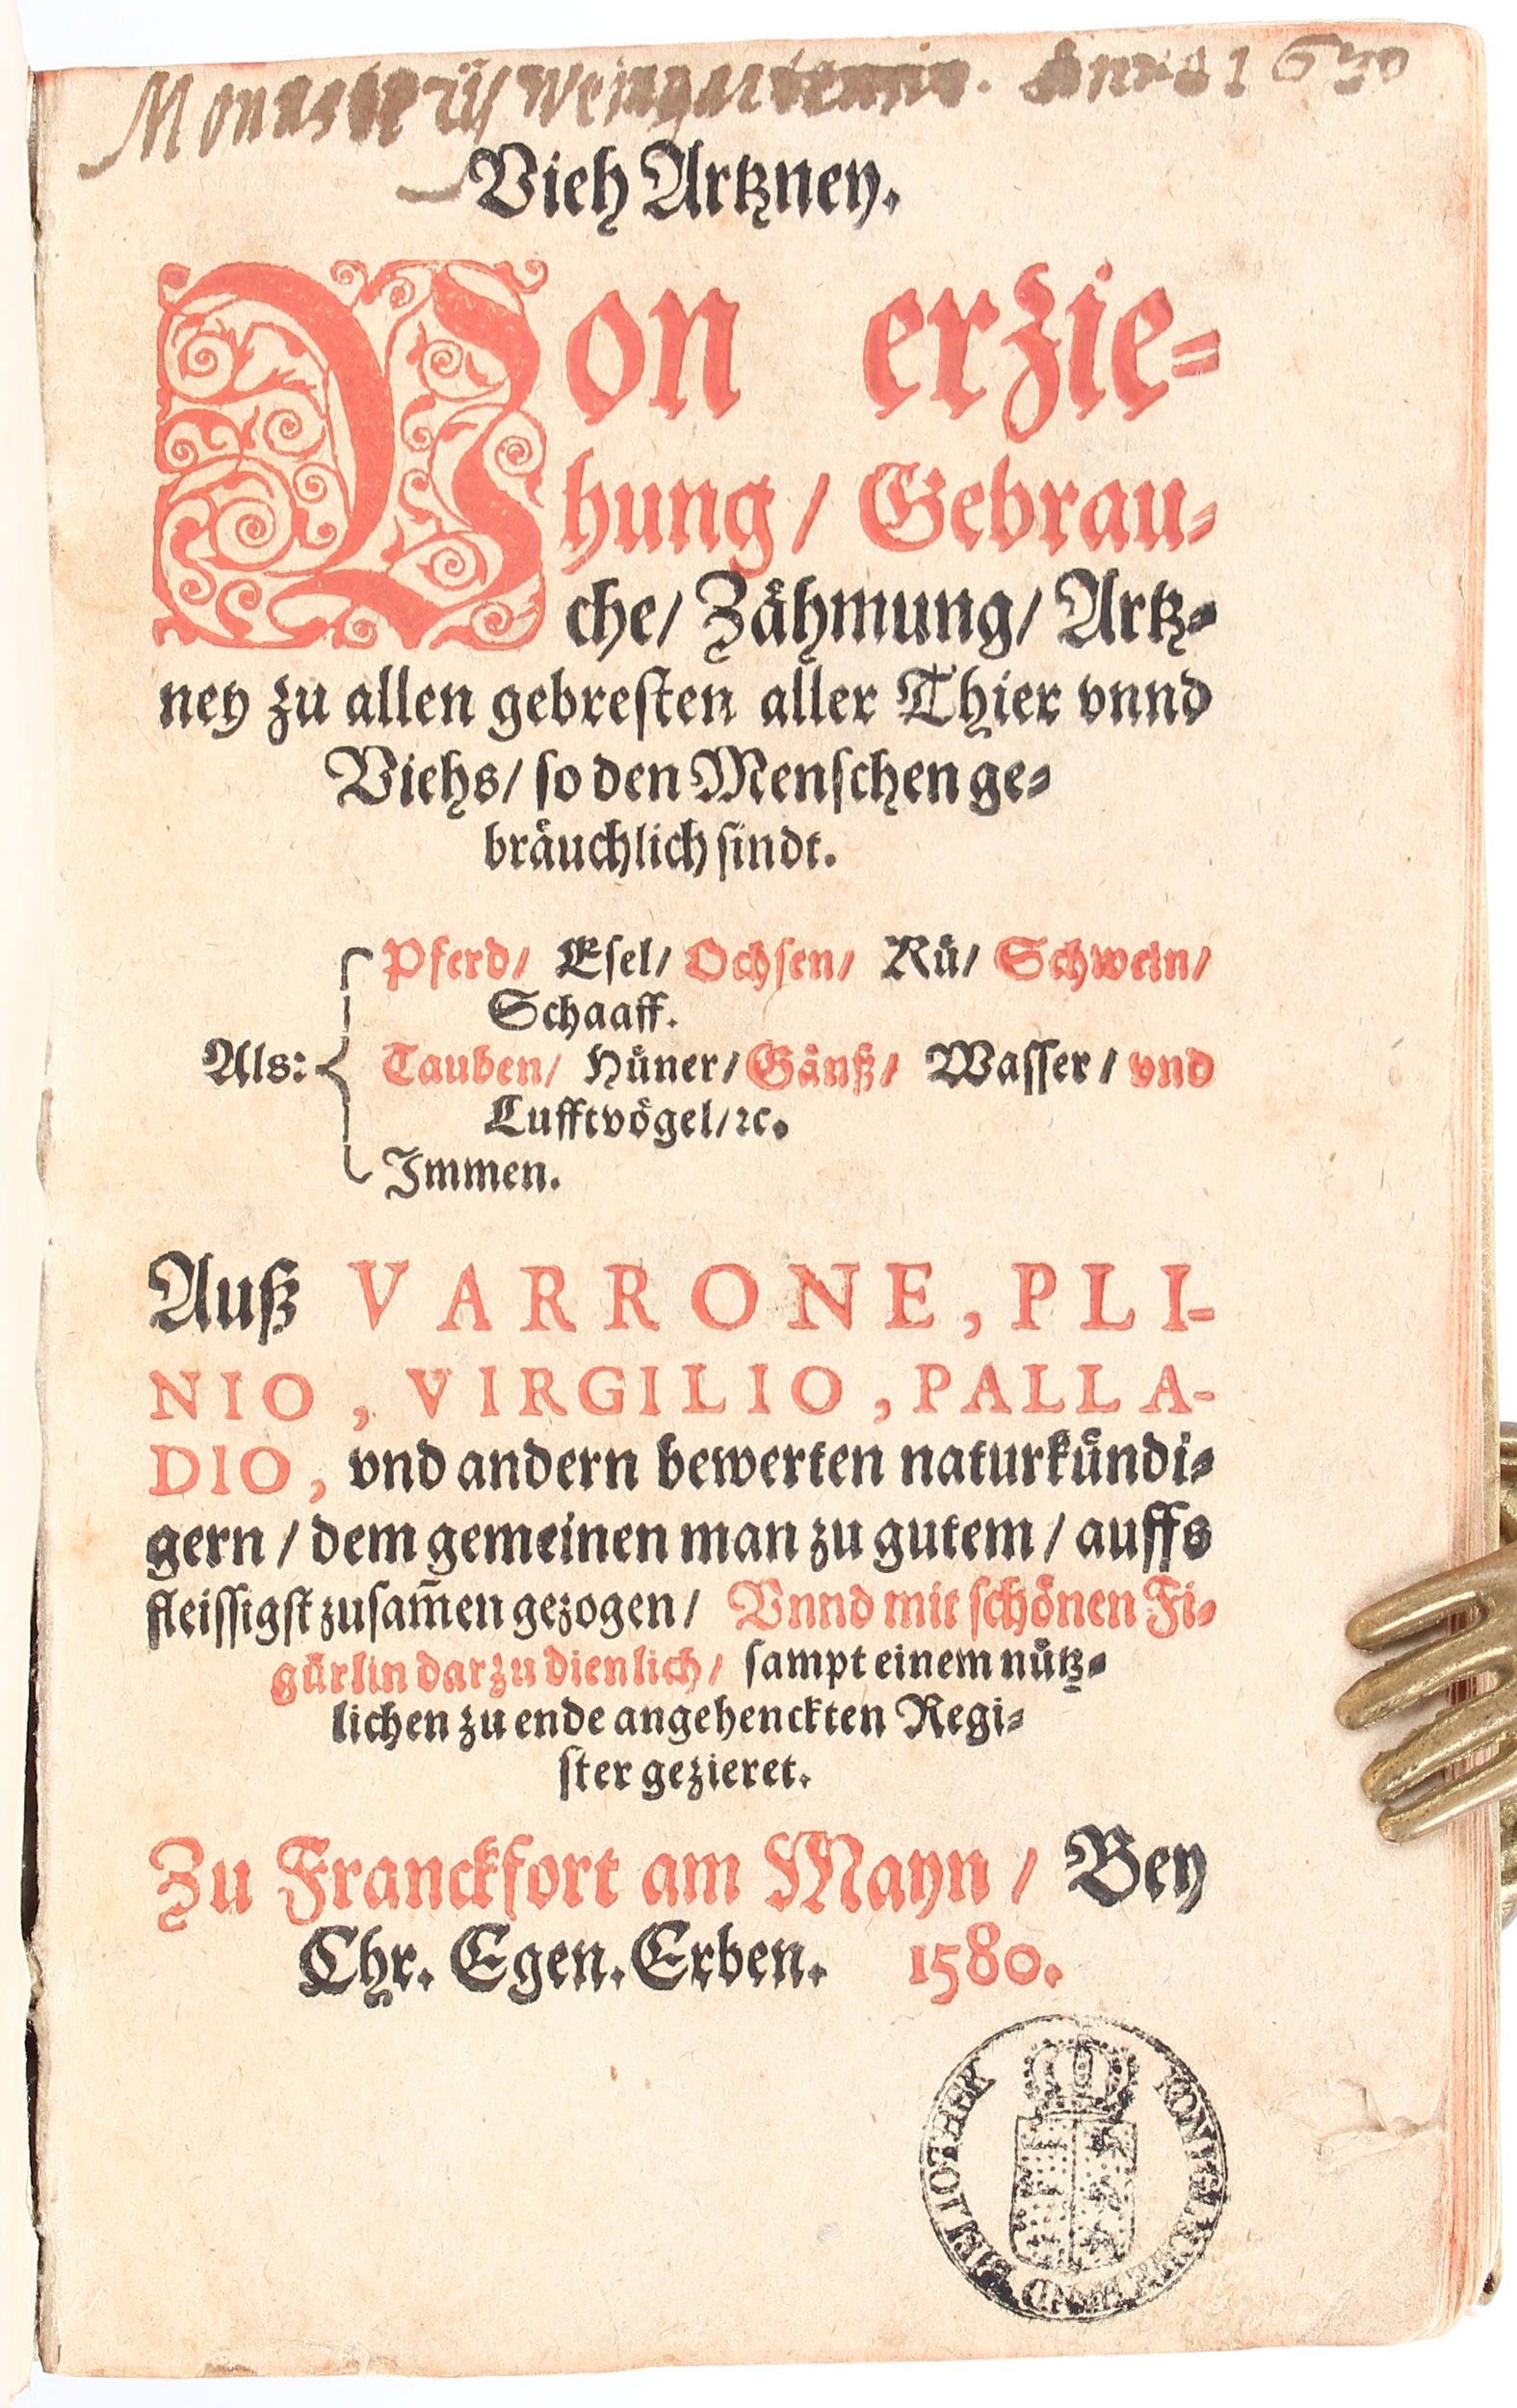 Monasterij Weingartensis. Anno 1630
Vieh Artzney.
Von erzie=
hung/ Gebrau=
che/ Zaͤhmung/ Artz=
ney zu allen gebreſten aller Thier vnnd
Viehs/ ſo den Menſchen ge=
braͤuchlich ſindt.
Pferd/ Eſel/ Ochſen/ Kuͤ/ Schwein/
Schaaff.
Als:
Tauben/ Huͤner/ Gaͤnß/ Waſſer/ vnd
Lufftvoͤgel/ ꝛc.
Immen.
Auß VARRONE, PLI-
NIO, VIRGILIO, PALLA-
DIO, vnd andern bewerten naturkuͤndi=
gern/ dem gemeinen man zu gutem/ auffs
fleiſſigſt zuſam̃en gezogen/ Vnnd mit ſchoͤnen Fi=
guͤrlin darzu dienlich/ ſampt einem nuͤtz=
lichen zu ende angehenckten Regi=
ſter gezieret.
Zu Franckfort am Mayn/ Bey
Chr. Egen. Erben. 1580.
BIBLIOTHEK